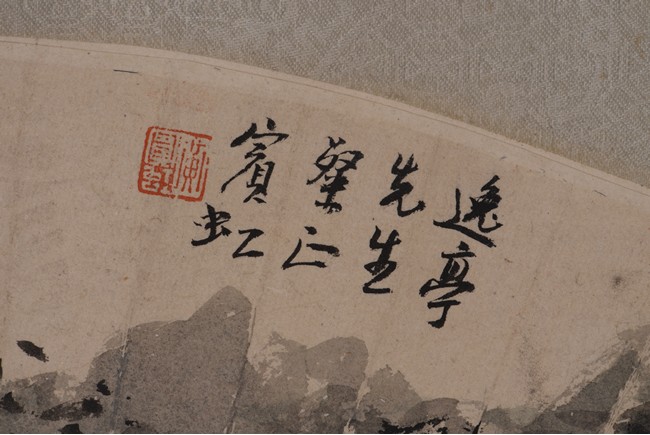 逸亭
先生
粲正
賓虹